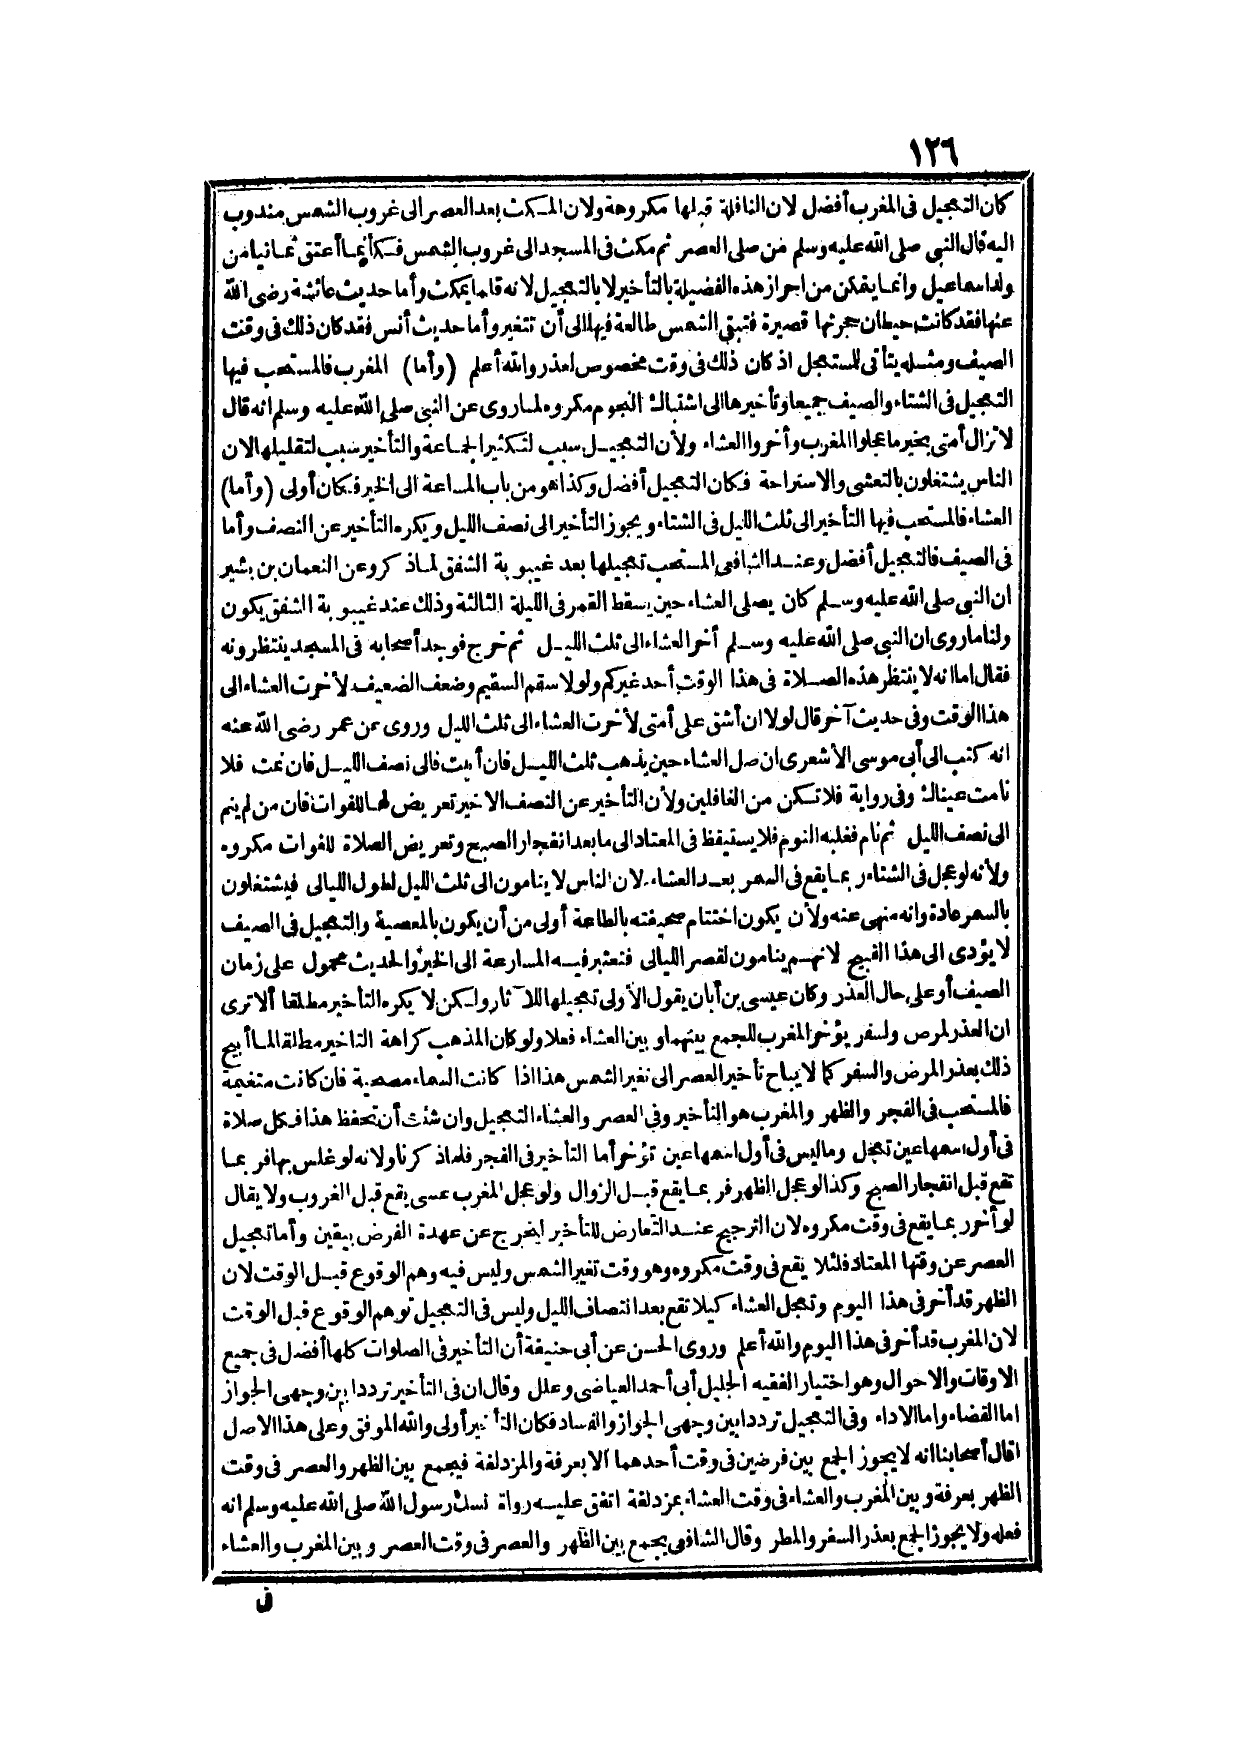 ١٢٦
كان التعجيل فى المغرب أفضل لان النافلة قبلها مكروهة ولان المكث بعد العصر الى غروب الشمس مندوب
اليه قال النبى صلى الله عليه وسلم من صلى العصر ثم مكث فى المسجد الى غروب الشمس فكأنما أعتق ثمانيا من
ولد اسماعيل وانما يتمكن من احراز هذه الفضيلة بالتأخير لا بالتعجيل لانه قلما يمكث وأما حديث عائشة رضى الله
عنها فقد كانت حيطان حجرتها قصيرة فتبقى الشمس طالعة فيها الى أن تتغير وأما حديث أنس فقد كان ذلك فى وقت
الصيف ومثله يتأتى للمستعجل اذ كان ذلك فى وقت مخصوص لعذر والله أعلم (وأما) المغرب فالمستحب فيها
التعجيل فى الشتاء والصيف جميعا وتأخيرها الى اشتباك النجوم مكروه لما روى عن النبى صلى الله عليه وسلم انه قال
لا تزال أمتى بخير ما عجلوا المغرب وأخروا العشاء ولأن التعجيل سبب لتكثير الجماعة والتأخير سبب لتقليلها لان
الناس يشتغلون بالتعشى والاستراحة فكان التعجيل أفضل وكذا هو من باب المساعة الى الخير فكان أولى (وأما)
العشاء فالمستحب فيها التأخير الى ثلث الليل فى الشتاء ويجوز التأخير الى نصف الليل ويكره التأخير عن النصف وأما
فى الصيف فالتعجيل أفضل وعند الشافعى المستحب تعجيلها بعد غيبوبة الشفق لما ذكر وعن النعمان بن بشير
ان النبى صلى الله عليه وسلم كان يصلى العشاء حين يسقط القمر فى الليلة الثالثة وذلك عند غيبوبة الشفق يكون
ولنا ما روى ان النبى صلى الله عليه وسلم أخر العشاء الى ثلث الليل ثم خرج فوجد أصحابه فى المسجد ينتظرونه
فقال اما انه لا ينتظر هذه الصلاة فى هذا الوقت أحد غيركم ولولا سقم السقيم وضعف الضعيف لأخرت العشاء الى
هذا الوقت وفى حديث آخر قال لولا ان أشق على أمتى لأخرت العشاء الى ثلث الليل وروى عن عمر رضى الله عنه
انه كتب الى أبى موسى الأشعرى ان صل العشاء حين يذهب ثلث الليل فان أبيت فالى نصف الليل فان نمت فلا
نامت عيناك وفى رواية فلا تكن من الغافلين ولأن التأخير عن النصف الاخير تعريض لها للفوات فان من لم ينم
الى نصف الليل ثم نام فغلبه النوم فلا يستيقظ فى المعتاد الى ما بعد انفجار الصبح وتعريض الصلاة للفوات مكروه
ولأنه لو عجل فى الشتاء ربما يقع فى السمر بعد العشاء لان الناس لا ينامون الى ثلث الليل لطول الليالى فيشتغلون
بالسمر عادة وانه منهى عنه ولأن يكون اختتام صحيفته بالطاعة أولى من أن يكون بالمعصية والتعجيل فى الصيف
لا يؤدى الى هذا القبيح لانهم ينامون لقصر الليالى فتعتبر فيه المسارعة الى الخير والحديث محمول على زمان
الصيف أو على حال العذر وكان عيسى بن أبان يقول الأولى تعجيلها للآثار ولكن لا يكره التأخير مطلقا ألا ترى
ان العذر لمرض ولسفر يؤخر المغرب للجمع بينهما وبين العشاء فعلا ولو كان المذهب كراهة التاخير مطلقا لما أبيح
ذلك بعذر المرض والسفر كما لا يباح تأخير العصر الى تغير الشمس هذا اذا كانت السماء مصحية فان كانت متغيمة
فالمستحب فى الفجر والظهر والمغرب هو التأخير وفى العصر والعشاء التعجيل وان شئت أن تحفظ هذا فكل صلاة
فى أول اسمها عين تعجل وما ليس فى أول اسمها عين تؤخر أما التأخير فى الفجر فلما ذكرنا ولانه لو غلس بها فربما
تقع قبل انفجار الصبح وكذا لو عجل الظهر فربما يقع قبل الزوال ولو عجل المغرب عسى يقع قبل الغروب ولا يقال
لو أخر ربما يقع فى وقت مكروه لان الترجيح عند التعارض للتأخير ليخرج عن عهدة الفرض بيقين وأما تعجيل
العصر عن وقتها المعتاد فلئلا يقع فى وقت مكروه وهو وقت تغير الشمس وليس فيه وهم الوقوع قبل الوقت لان
الظهر قد أخر فى هذا اليوم وتعجل العشاء كيلا تقع بعد انتصاف الليل وليس فى التعجيل توهم الوقوع قبل الوقت
لان المغرب قد أخر فى هذا اليوم والله أعلم وروى الحسن عن أبى حنيفة أن التأخير فى الصلوات كلها أفضل فى جميع
الاوقات والاحوال وهو اختيار الفقيه الجليل أبى أحمد العياضى وعلل وقال ان فى التأخير ترددا بين وجهى الجواز
اما القضاء واما الاداء وفى التعجيل ترددا بين وجهى الجواز والفساد فكان التأخير أولى والله الموفق وعلى هذا الاصل
قال أصحابنا انه لا يجوز الجمع بين فرضين فى وقت أحدهما الا بعرفة والمزدلفة فيجمع بين الظهر والعصر فى وقت
الظهر بعرفة وبين المغرب والعشاء فى وقت العشاء بمزدلفة اتفق عليه رواة نسك رسول الله صلى الله عليه وسلم انه
فعله ولا يجوز الجمع بعذر السفر والمطر وقال الشافعى يجمع بين الظهر والعصر فى وقت العصر وبين المغرب والعشاء
فى